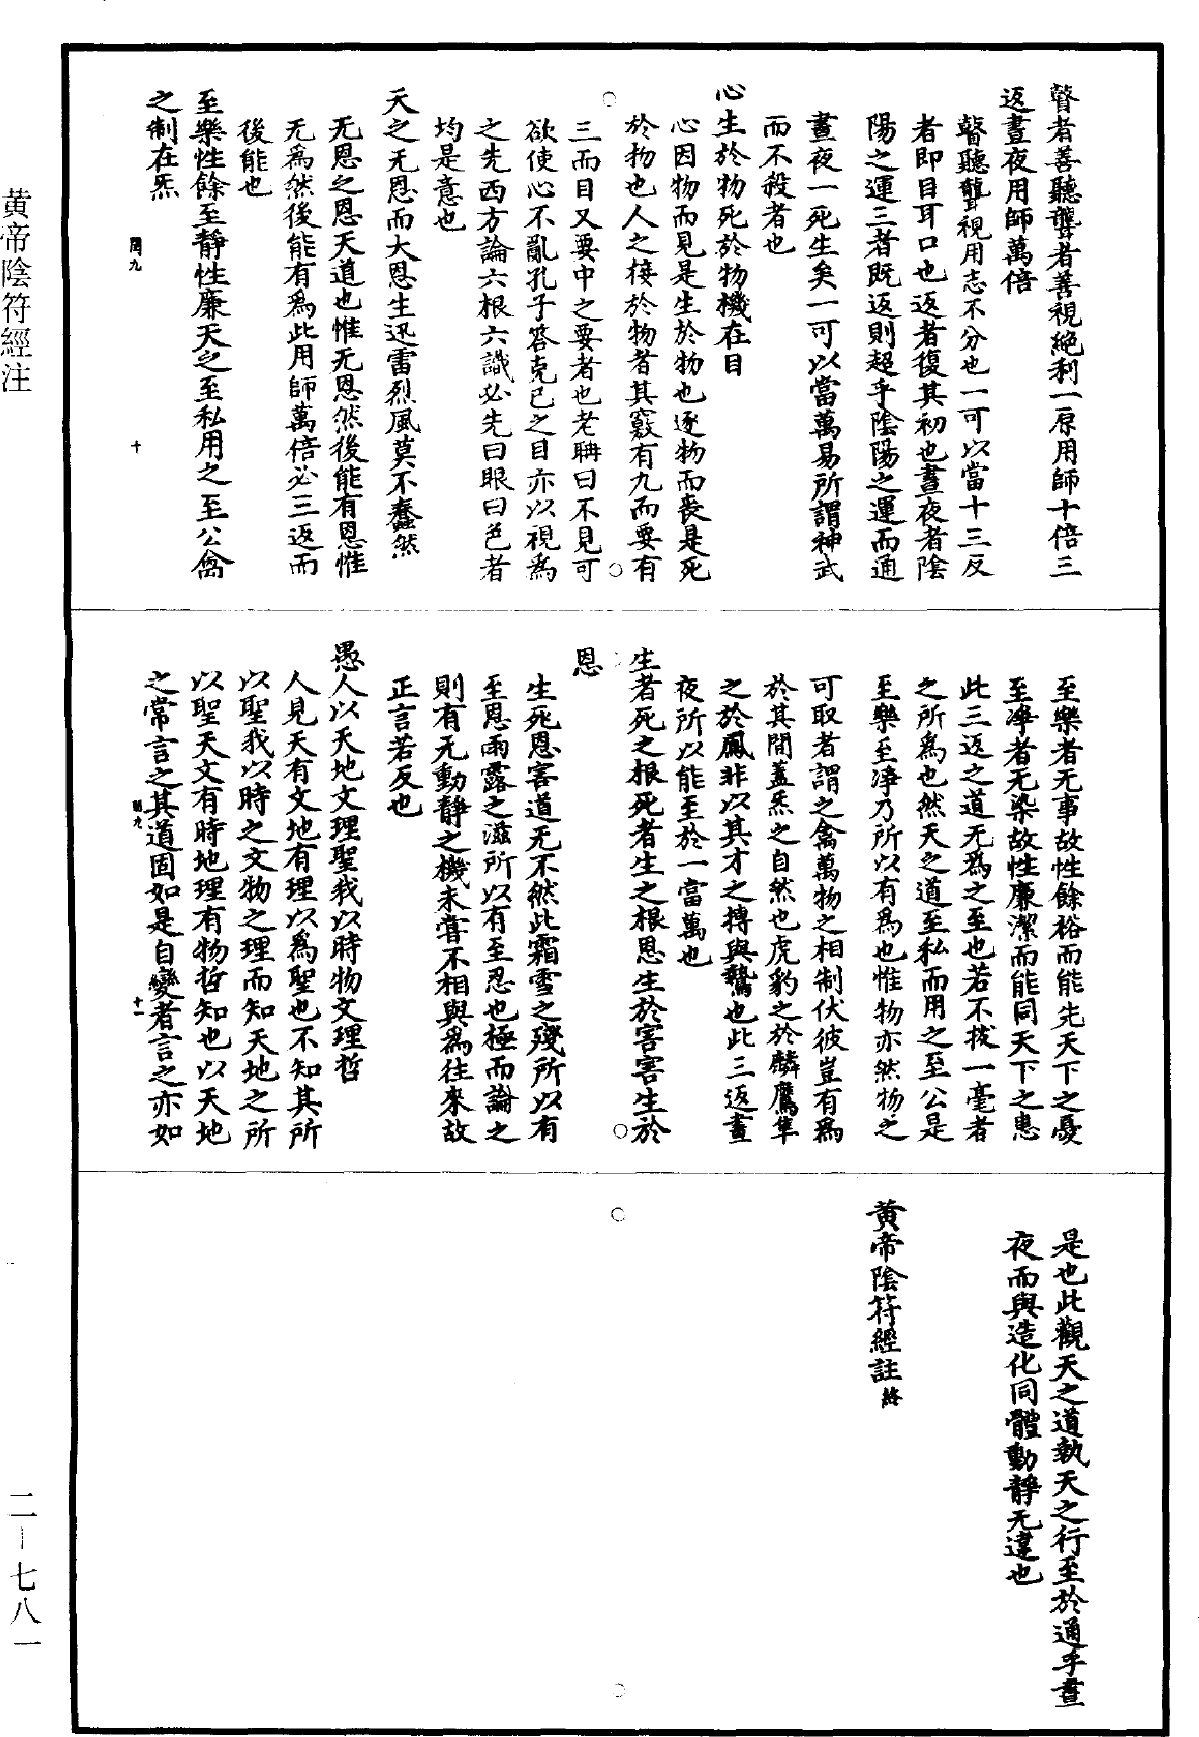 瞽者善聽聾者善視絶利一原用師十倍三
返晝夜用師萬倍
瞽聽聾視用志不分也一可以當十三反
者即目耳口也返者復其初也晝夜者陰
陽之運三者既返則超乎陰陽之運而通
晝夜一死生矣一可以當萬易所謂神武
而不殺者也
心生於物死於物機在目
心因物而見是生於物也逐物而喪是死
於物也人之接於物者其竅有九而要有
三而目又要中之要者也老聃曰不見可
欲使心不亂孔子答克己之目亦以視爲
之先西方論六根六識必先曰眼曰色者
均是意也
天之无恩而大恩生迅雷烈風莫不蠢然
无恩之恩天道也惟无恩然後能有恩惟
无爲然後能有爲此用師萬倍必三返而
後能也
至樂性餘至靜性廉天之至私用之至公禽
之制在炁
閏九
十
至樂者无事故性餘裕而能先天下之憂
至凈者无染故性廉潔而能同天下之患
此三返之道无爲之至也若不拔一毫者
之所爲也然天之道至私而用之至公是
至樂至凈乃所以有爲也惟物亦然物之
可取者謂之禽萬物之相制伏彼豈有爲
於其間蓋炁之自然也虎豹之於麟鷹隼
之於鳳非以其才之搏與鷙也此三返晝
夜所以能至於一當萬也
生者死之根死者生之根恩生於害害生於
恩
生死恩害道无不然此霜雪之殘所以有
至恩雨露之滋所以有至忍也極而論之
則有无動靜之機未嘗不相與爲往來故
正言若反也
愚人以天地文理聖我以時物文理哲
人見天有文地有理以爲聖也不知其所
以聖我以時之文物之理而知天地之所
以聖天文有時地理有物哲知也以天地
之常言之其道固如是自變者言之亦如
閏九
十一
是也此觀天之道執天之行至於通乎晝
夜而與造化同體動靜无違也
黄帝陰符經註終
黄帝陰符經注
二－七八一